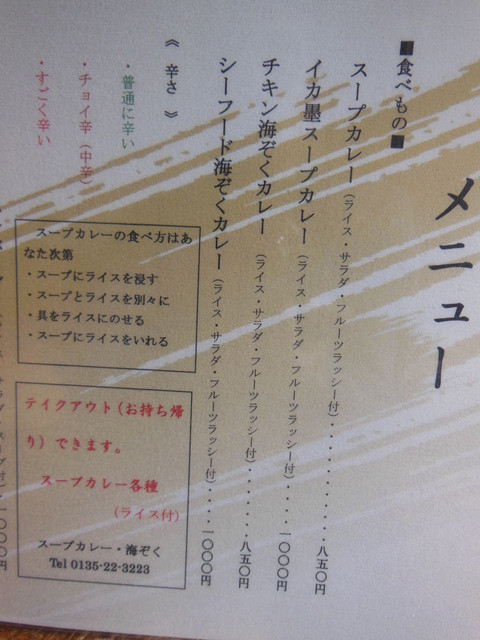 メニュー
■食べもの■
スープカレー（ライス・サラダ・フルーツラッシー付）・・・・・・・・・八五〇円
イカ墨スープカレー（ライス・サラダ・フルーツラッシー付）・・・・一〇〇〇円
チキン海ぞくカレー（ライス・サラダ・フルーツラッシー付）・・・・・・八五〇円
シーフード海ぞくカレー（ライス・サラダ・フルーツラッシー付）・・・・一〇〇〇円
《 辛さ 》
・普通に辛い
・チョイ辛（中辛）
・すごく辛い
スープカレーの食べ方はあ
なた次第
・スープにライスを浸す
・スープとライスを別々に
・具をライスにのせる
・スープにライスをいれる
テイクアウト（お持ち帰
り）できます。
スープカレー各種
（ライス付）
スープカレー・海ぞく
Tel 0135-22-3223